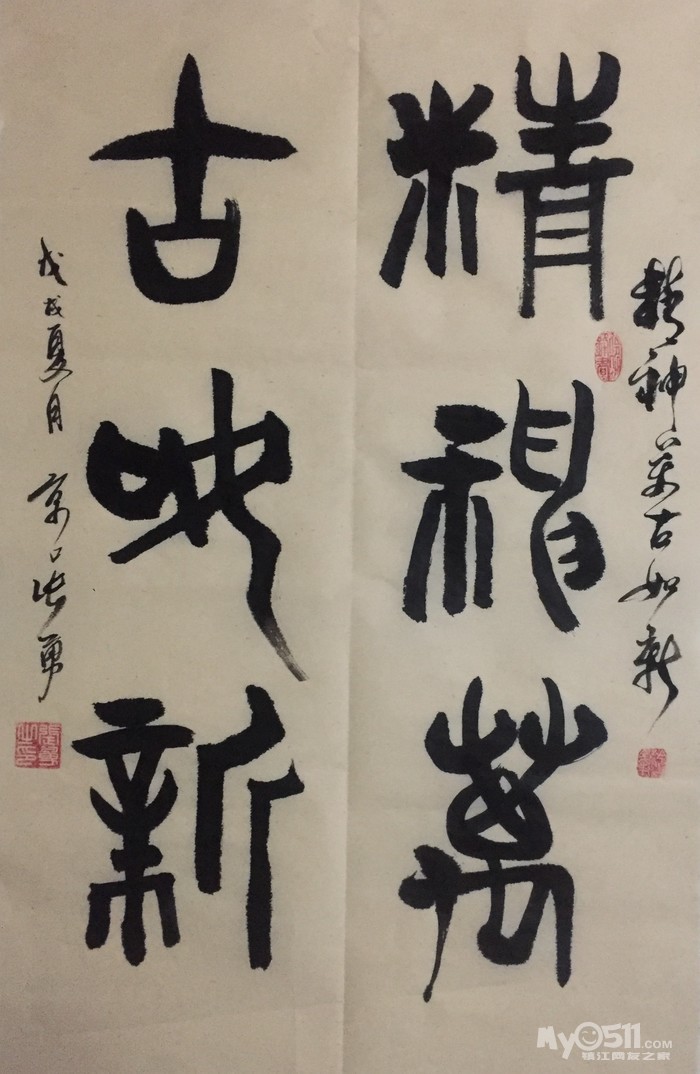 精神萬古如新
精神萬
古如新
戊戌夏月 京口张勇
My0511.COM
镇江网友之家